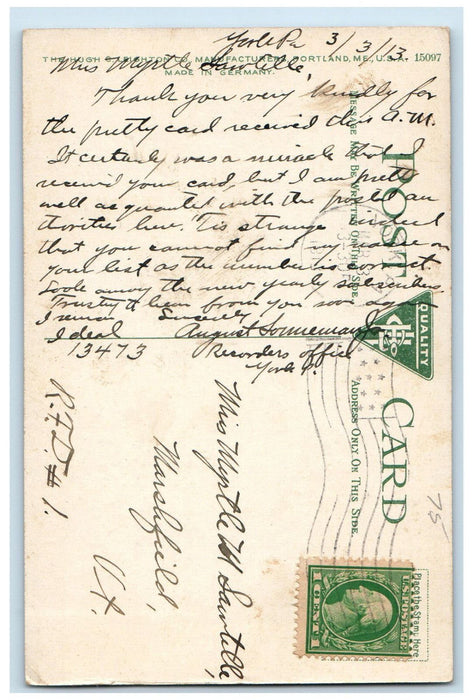 York Pa 3/3/13
THE HUGH C. LEIGHTON CO., MANUFACTURERS, PORTLAND, ME., U.S.A. 15097
MADE IN GERMANY.
Miss Myrtle Sawtelle,
Thank you very kindly for
the pretty card received this A.M.
It certainly was a miracle that I
received your card, but I am pretty
well acquainted with the postal au
thorities here. 'Tis strange indeed
that you cannot find my name on
your list as the number is correct.
Look among the new yearly subscribers.
Trusting to hear from you soon again
I remain Sincerely
Ideal August Sonneman Jr
13473 Recorders office
York Pa.
POST CARD
MESSAGE MAY BE WRITTEN ON THIS SIDE
ADDRESS ONLY ON THIS SIDE.
QUALITY
Place the Stamp Here
U.S. POSTAGE
1 CENT 1
75
Miss Myrtle M Sawtelle,
Marshfield,
Vt.
R.F.D. # 1.